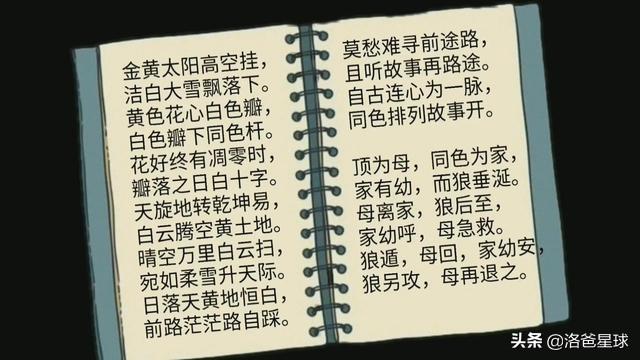 金黄太阳高空挂，
洁白大雪飘落下。
黄色花心白色瓣，
白色瓣下同色杆。
花好终有凋零时，
瓣落之日白十字。
天旋地转乾坤易，
白云腾空黄土地。
晴空万里白云扫，
宛如柔雪升天际。
日落天黄地恒白，
前路茫茫路自踩。
莫愁难寻前途路，
且听故事再路途。
自古连心为一脉，
同色排列故事开。
顶为母，同色为家，
家有幼，而狼垂涎。
母离家，狼后至，
家幼呼，母急救。
狼遁，母回，家幼安，
狼另攻，母再退之。
头条 @洛爸星球